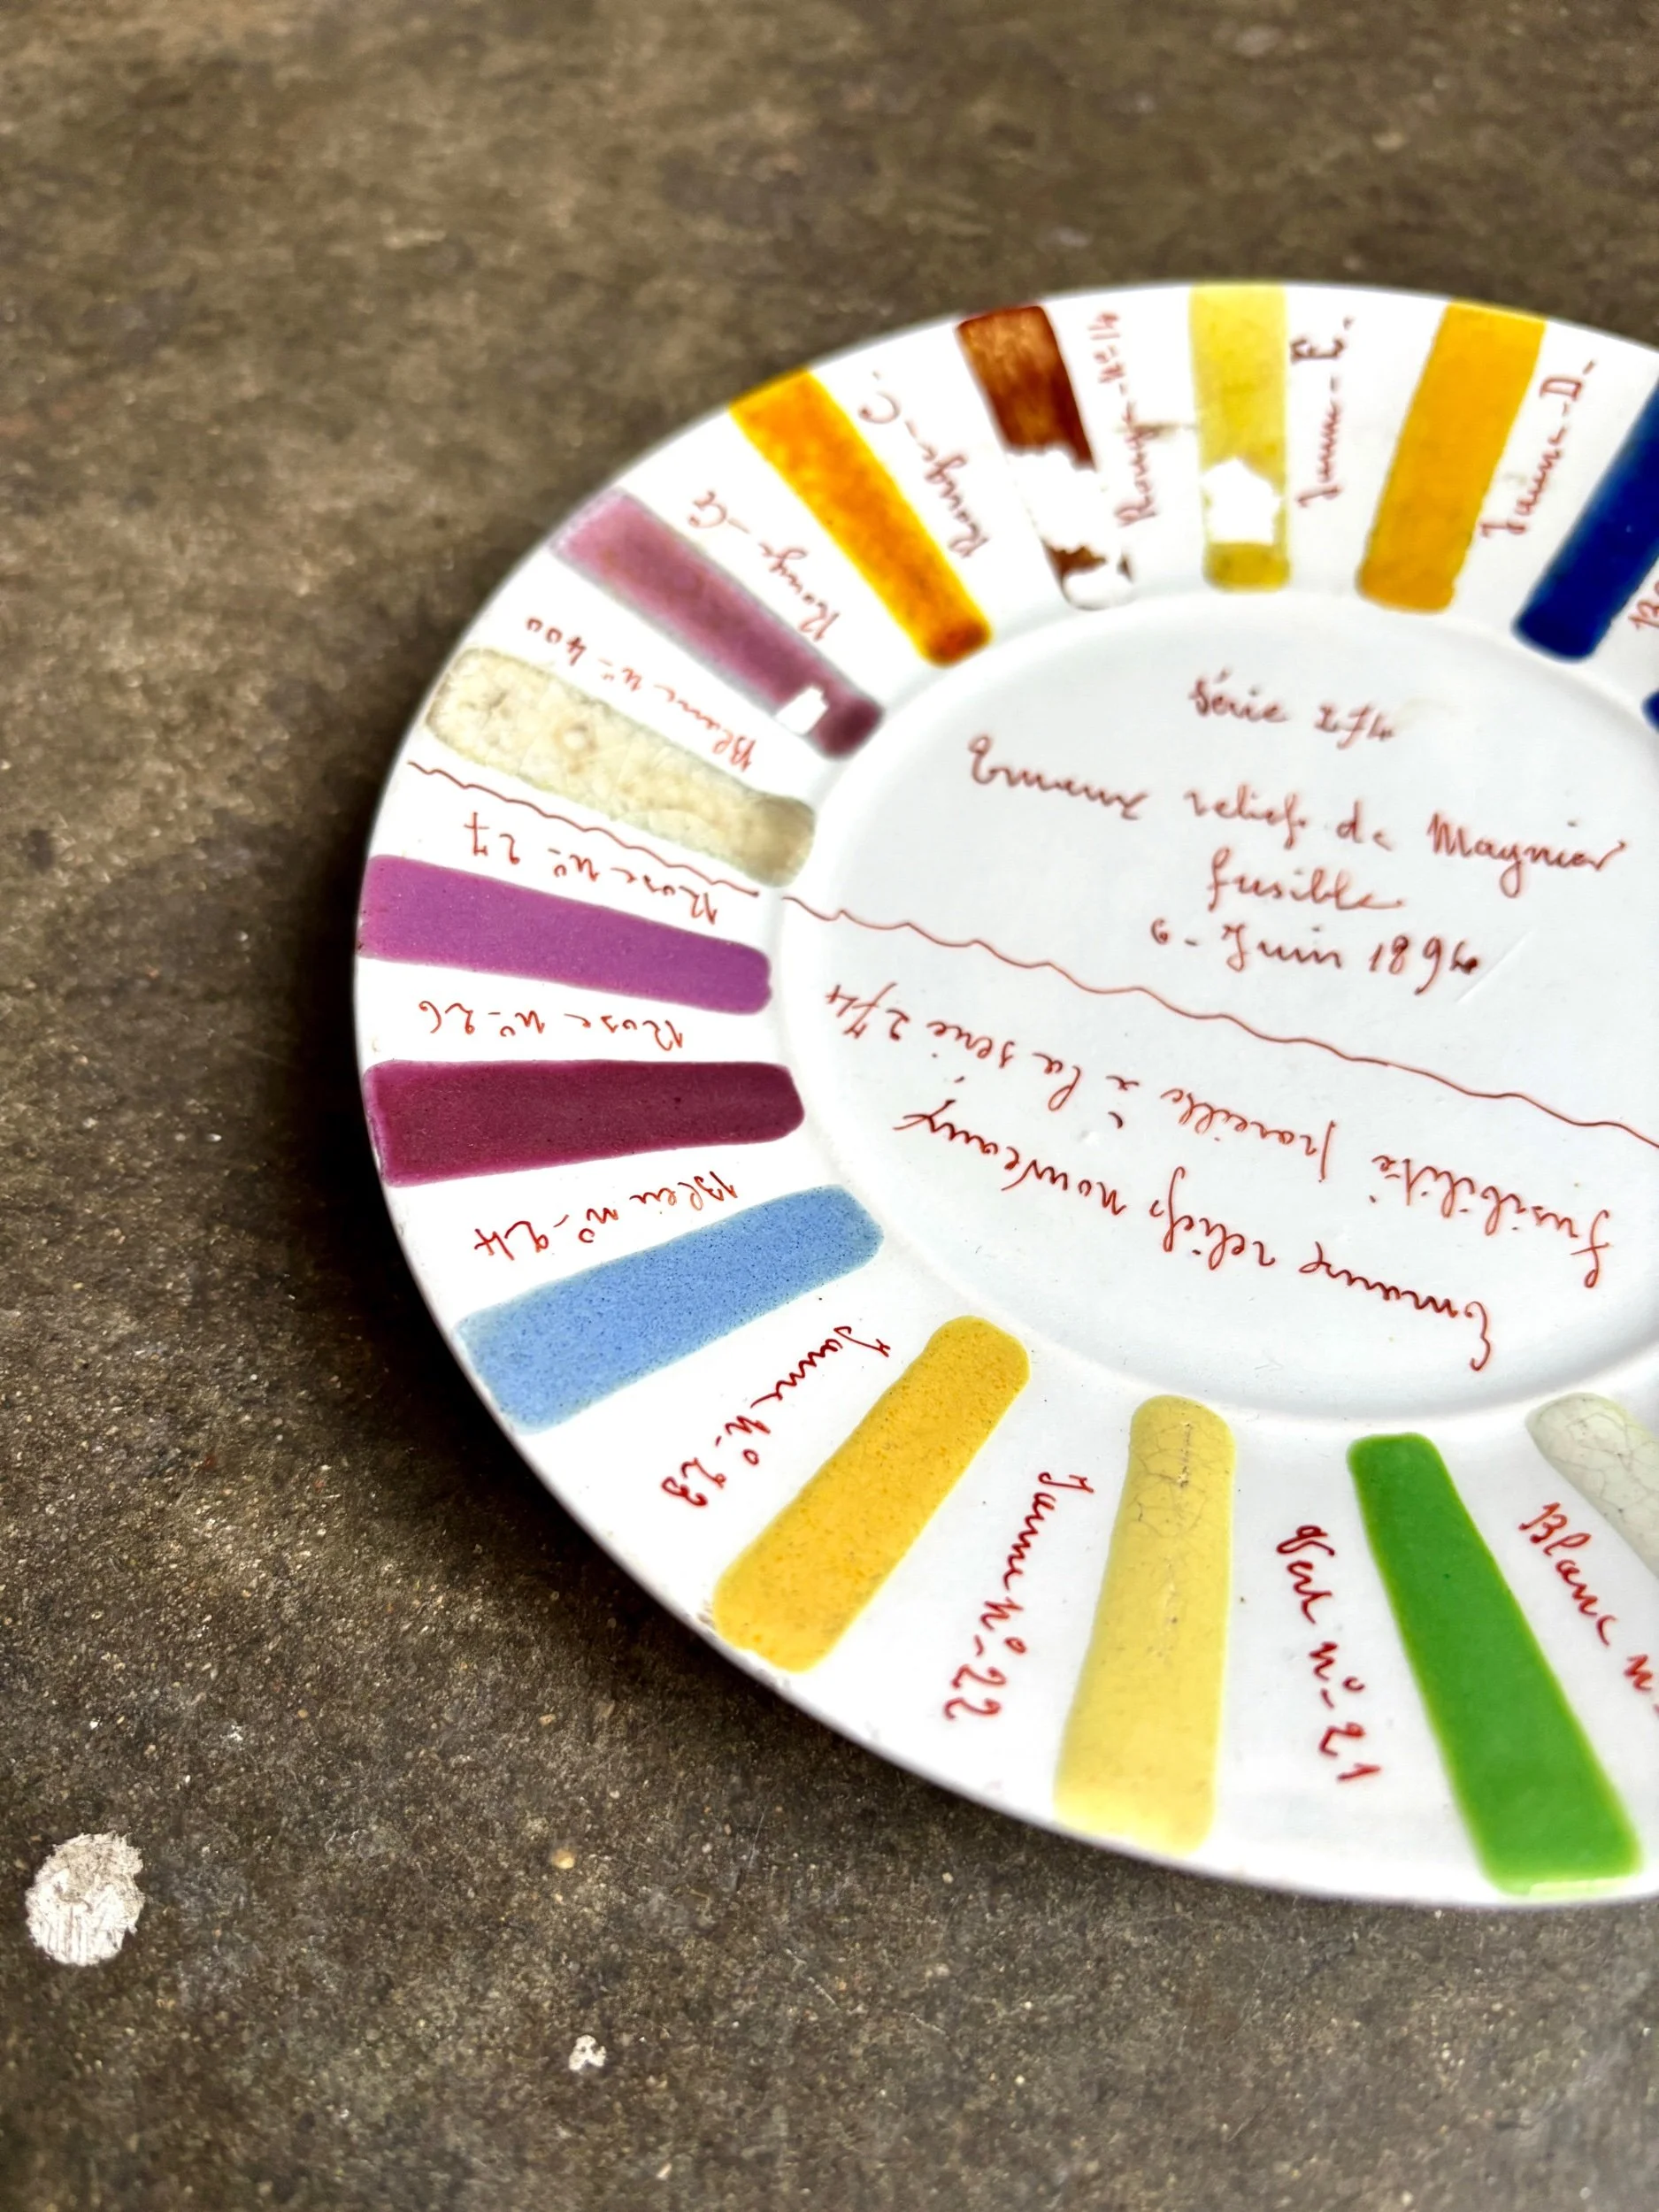 Série 274
Emaux reliefs de Magnier
fusible
6 - Juin 1894
Emaux reliefs nouveaux
fusibilité pareille à la série 274
Blanc n°
Vert n° 21
Jaune N° 22
Jaune N° 23
Bleu n° 24
Rose n° 26
Rose n° 27
Blanc n° 400
Rouge - G
Rouge - C.
Rouge - N° 14
Jaune - E.
Jaune - D -